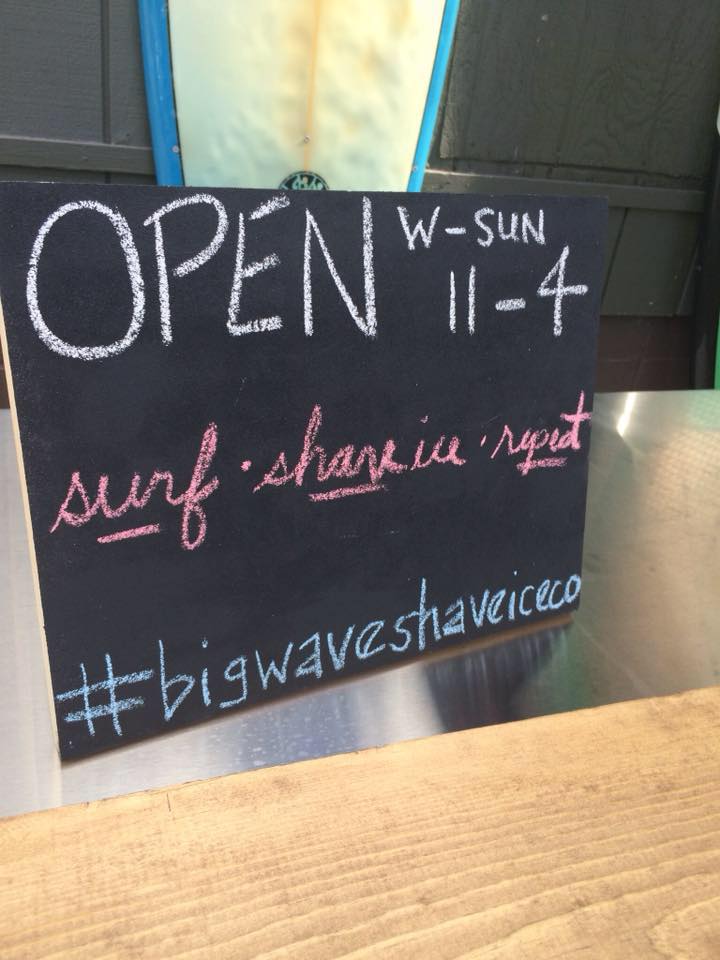 OPEN W-SUN
11-4
surf · shave ice · repeat
#bigwaveshaveiceco